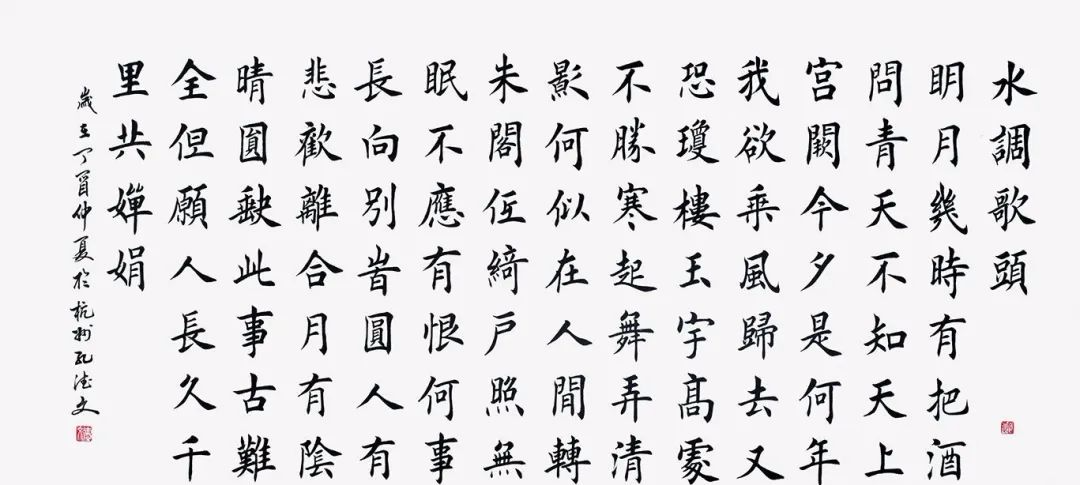 水調歌頭
明月幾時有把酒
問青天不知天上
宮闕今夕是何年
我欲乘風歸去又
恐瓊樓玉宇髙處
不勝寒起舞弄清
影何似在人閒轉
朱閣低綺戶照無
眠不應有恨何事
長向別旹圓人有
悲歡離合月有陰
晴圓缺此事古難
全但願人長久千
里共嬋娟
歲在丁酉仲夏於杭州孔德文